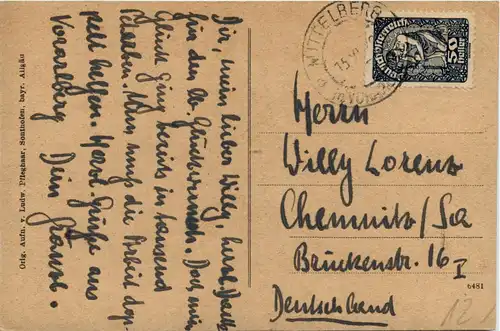 Dir, mein lieber Willy, herzl. Dank
für den lb. Glückwunsch. Doch mein
Glück ging bereits in tausend
Scherben. Nun muß die Arbeit dop-
pelt helfen. Herzl. Grüße aus
Vorarlberg Dein
Orig. Aufn. v. Ludw. Pfleghaar, Sonthofen, bayr. Allgäu
MITTELBERG
Deutschösterreich
50
Heller
Herrn
Willy Lorenz
Chemnitz/Sa
Brückenstr. 16 I
Deutschland
6481